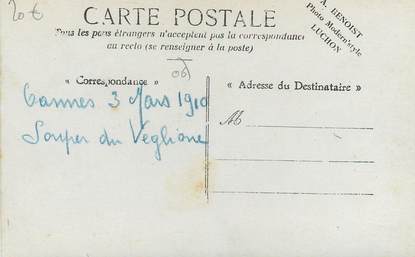 20 €
CARTE POSTALE
Tous les pays étrangers n'acceptent pas la correspondance
au recto (se renseigner à la poste)
A. BENOIST
Photo Modern'style
LUCHON
« Correspondance »
« Adresse du Destinataire »
Cannes 3 Mars 1910
Souper du Véglione
M